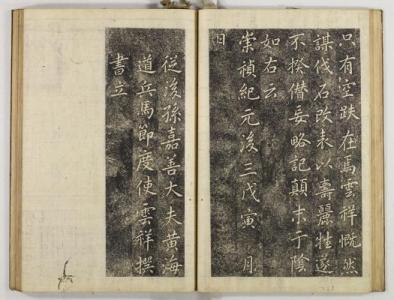 只有空趺在焉雲祥慨然
謀伐石改表以壽麗牲遂
不揆僭妄略記顛末于陰
如右云
崇禎紀元後三戊寅 月
日
從後孫嘉善大夫黃海
道兵馬節度使雲祥撰
書立